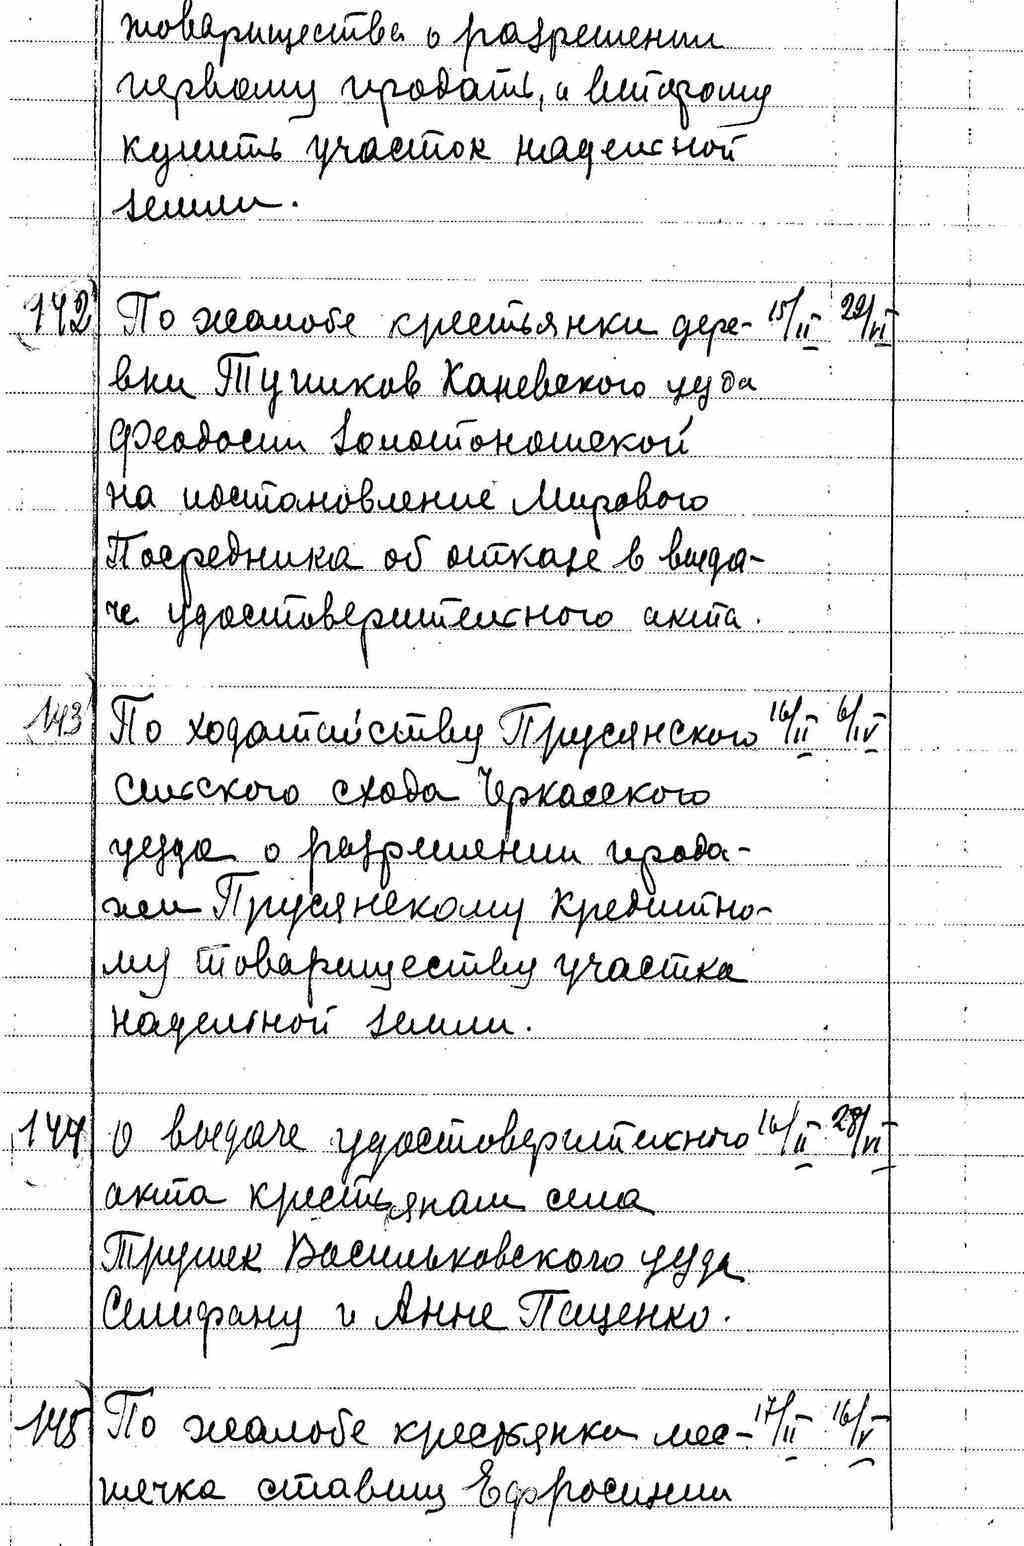 товарищества о разрешении
первому продать, а второму
купить участок надельной
земли.
142 По жалобе крестьянки дере- 15/II 22/VI
вни Тупиков Каневского уезда
Феодосии Золотоношской
на постановление Мирового
Посредника об отказе в выда-
че удостоверительного акта.
143 По ходатайству Прусянского 16/II 6/IV
сельского схода Черкасского
уезда о разрешении прода-
жи Прусянскому Кредитно-
му товариществу участка
надельной земли.
144 О выдаче удостоверительного 16/II 28/VI
акта крестьянам села
Трушек Васильковского уезда
Селифану и Анне Пащенко.
145 По жалобе крестьянки мес- 17/II 16/V
течка Ставищ Ефросинии